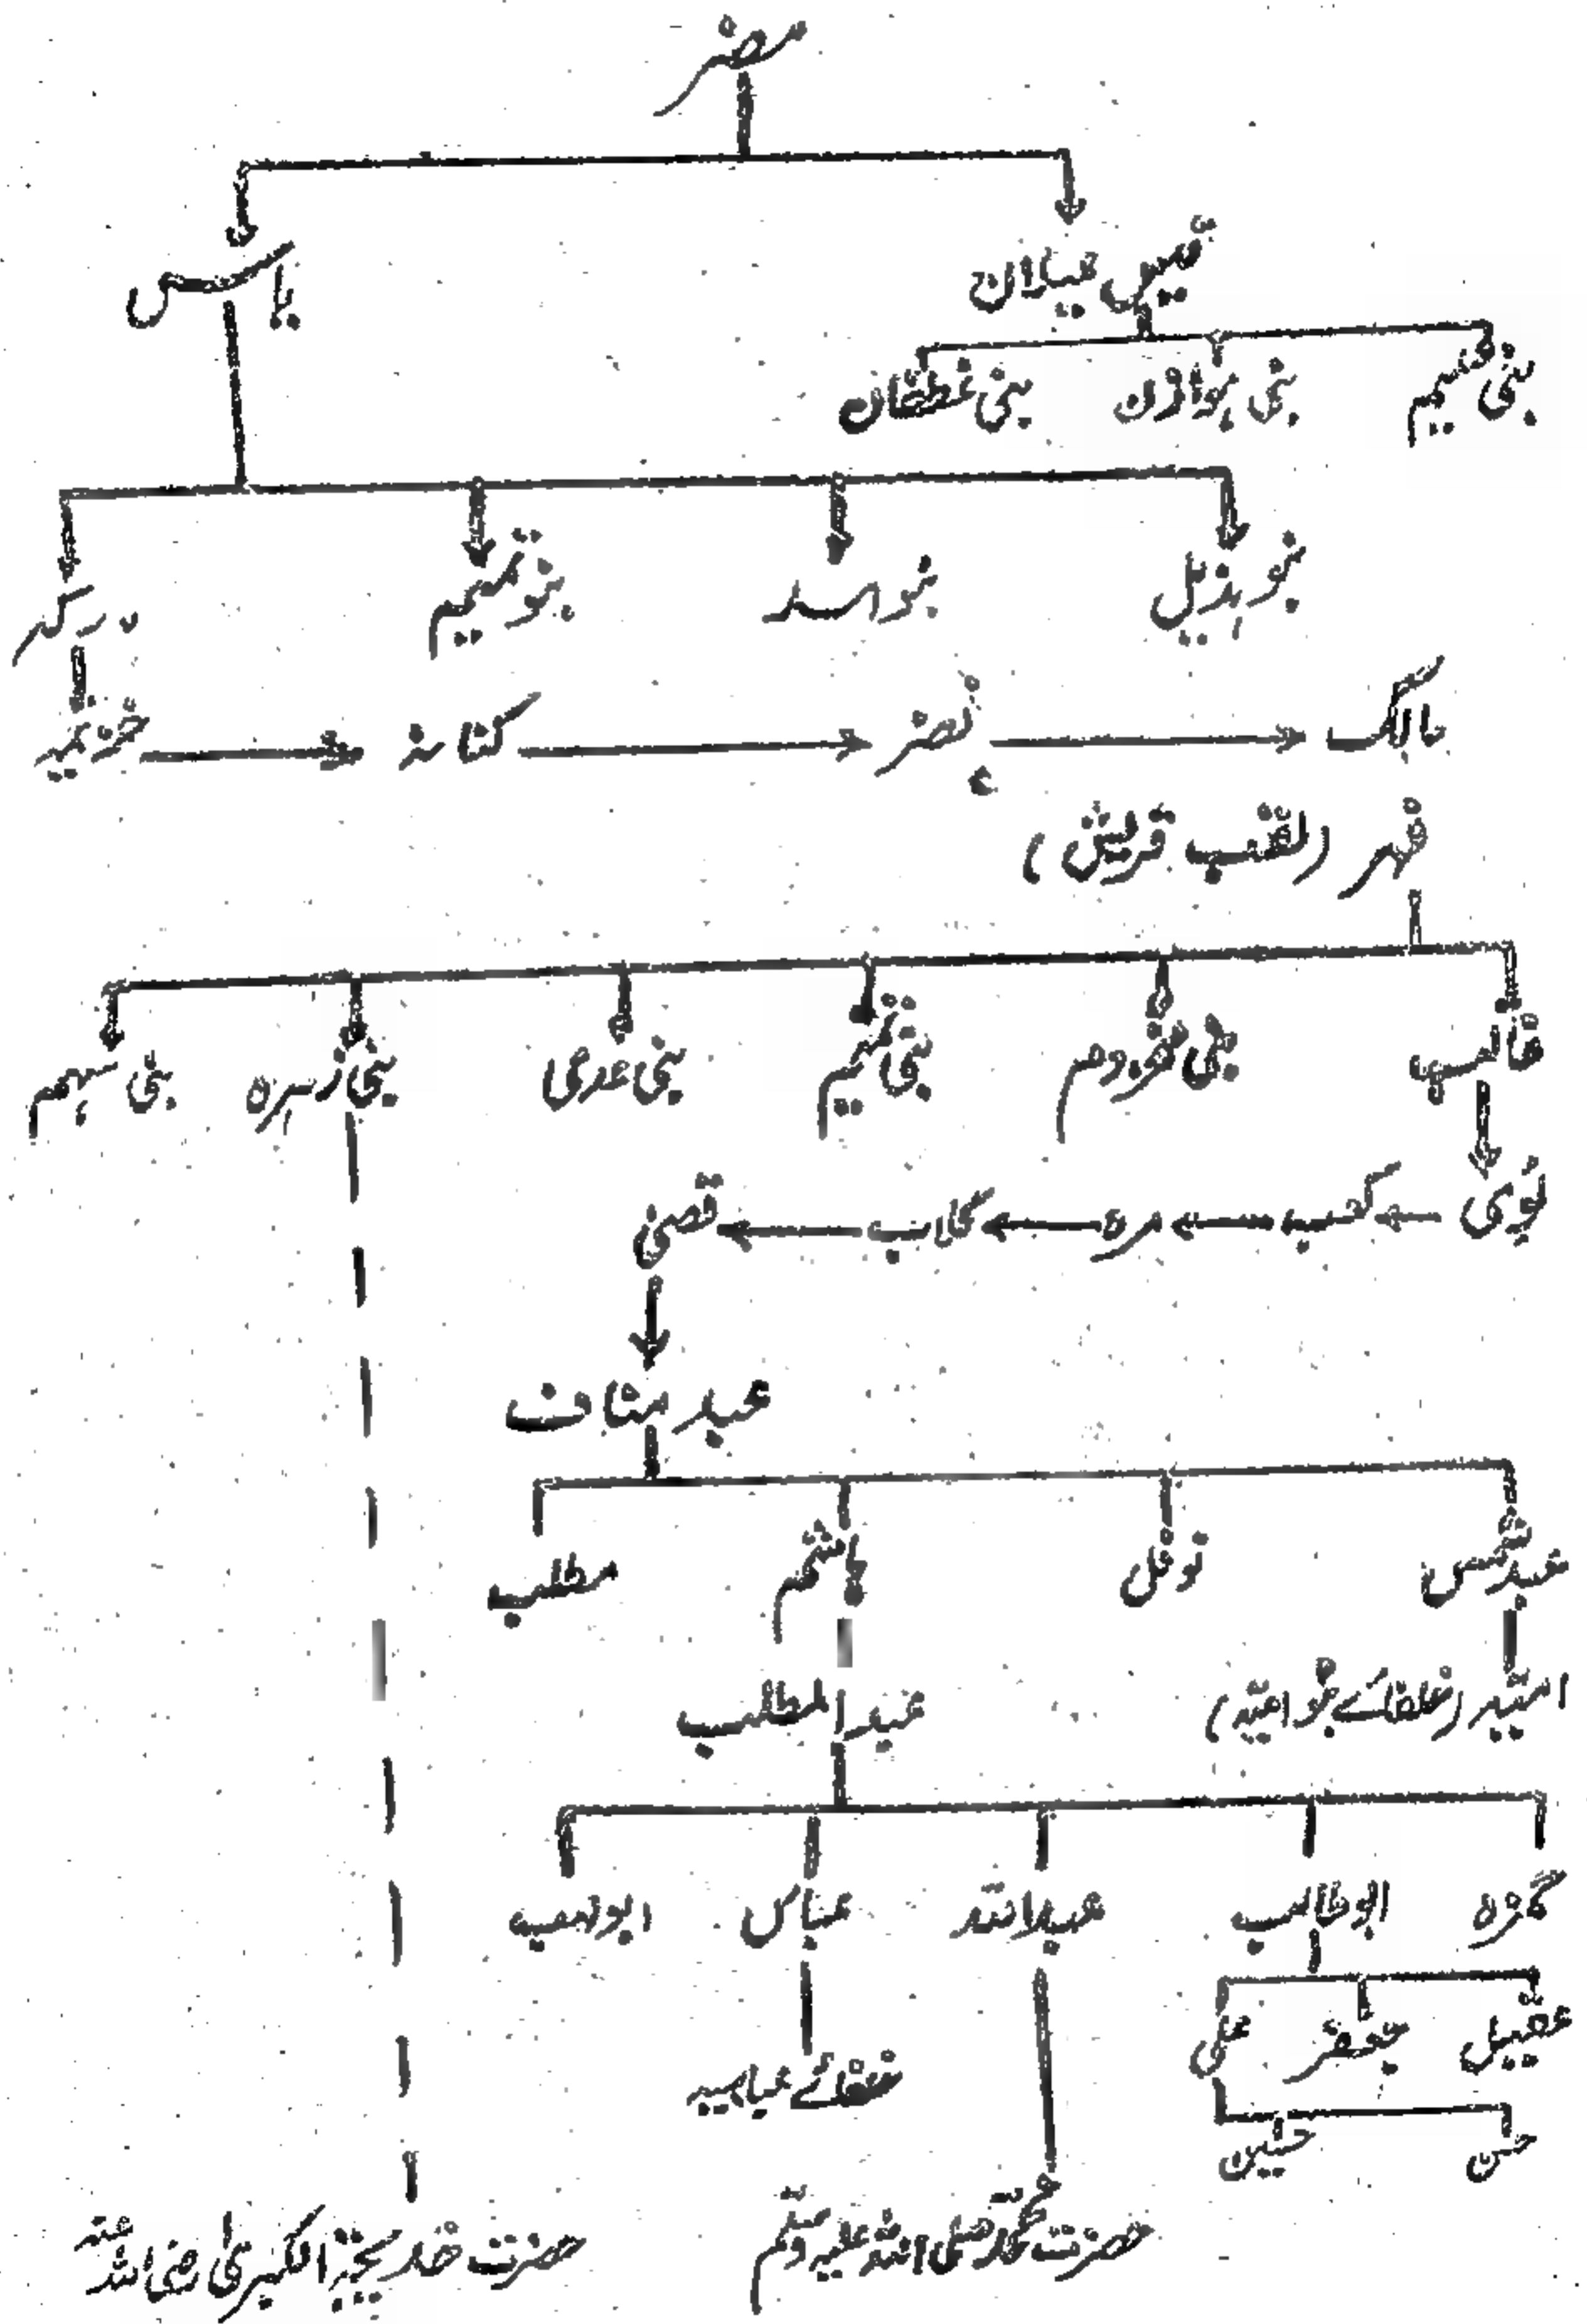 مضر
قیس عیلان یاس
بنی سلیم بنی ہوازن بنی غطفان
بنو ہذیل بنو اسد بنو تمیم درکہ
خزیمہ کنانہ نضر مالک
فہر (لقب قریش)
غالب بنی مخزوم بنی تمیم بنی عدی بنی زہرہ بنی سہم
لوئی کعب مرہ کلاب قصیٰ
عبد مناف
عبد شمس نوفل ہاشم مطلب
امیّہ (خلفائے بنو امیّہ) عبد المطلب
حمزہ ابو طالب عبداللہ عباس ابو لہب
عقیل جعفر علی
خلفائے عباسیہ
حسن حسین
حضرت محمدؐ صلی اللہ علیہ وسلم حضرت خدیجۃ الکبریٰ رضی اللہ عنہ